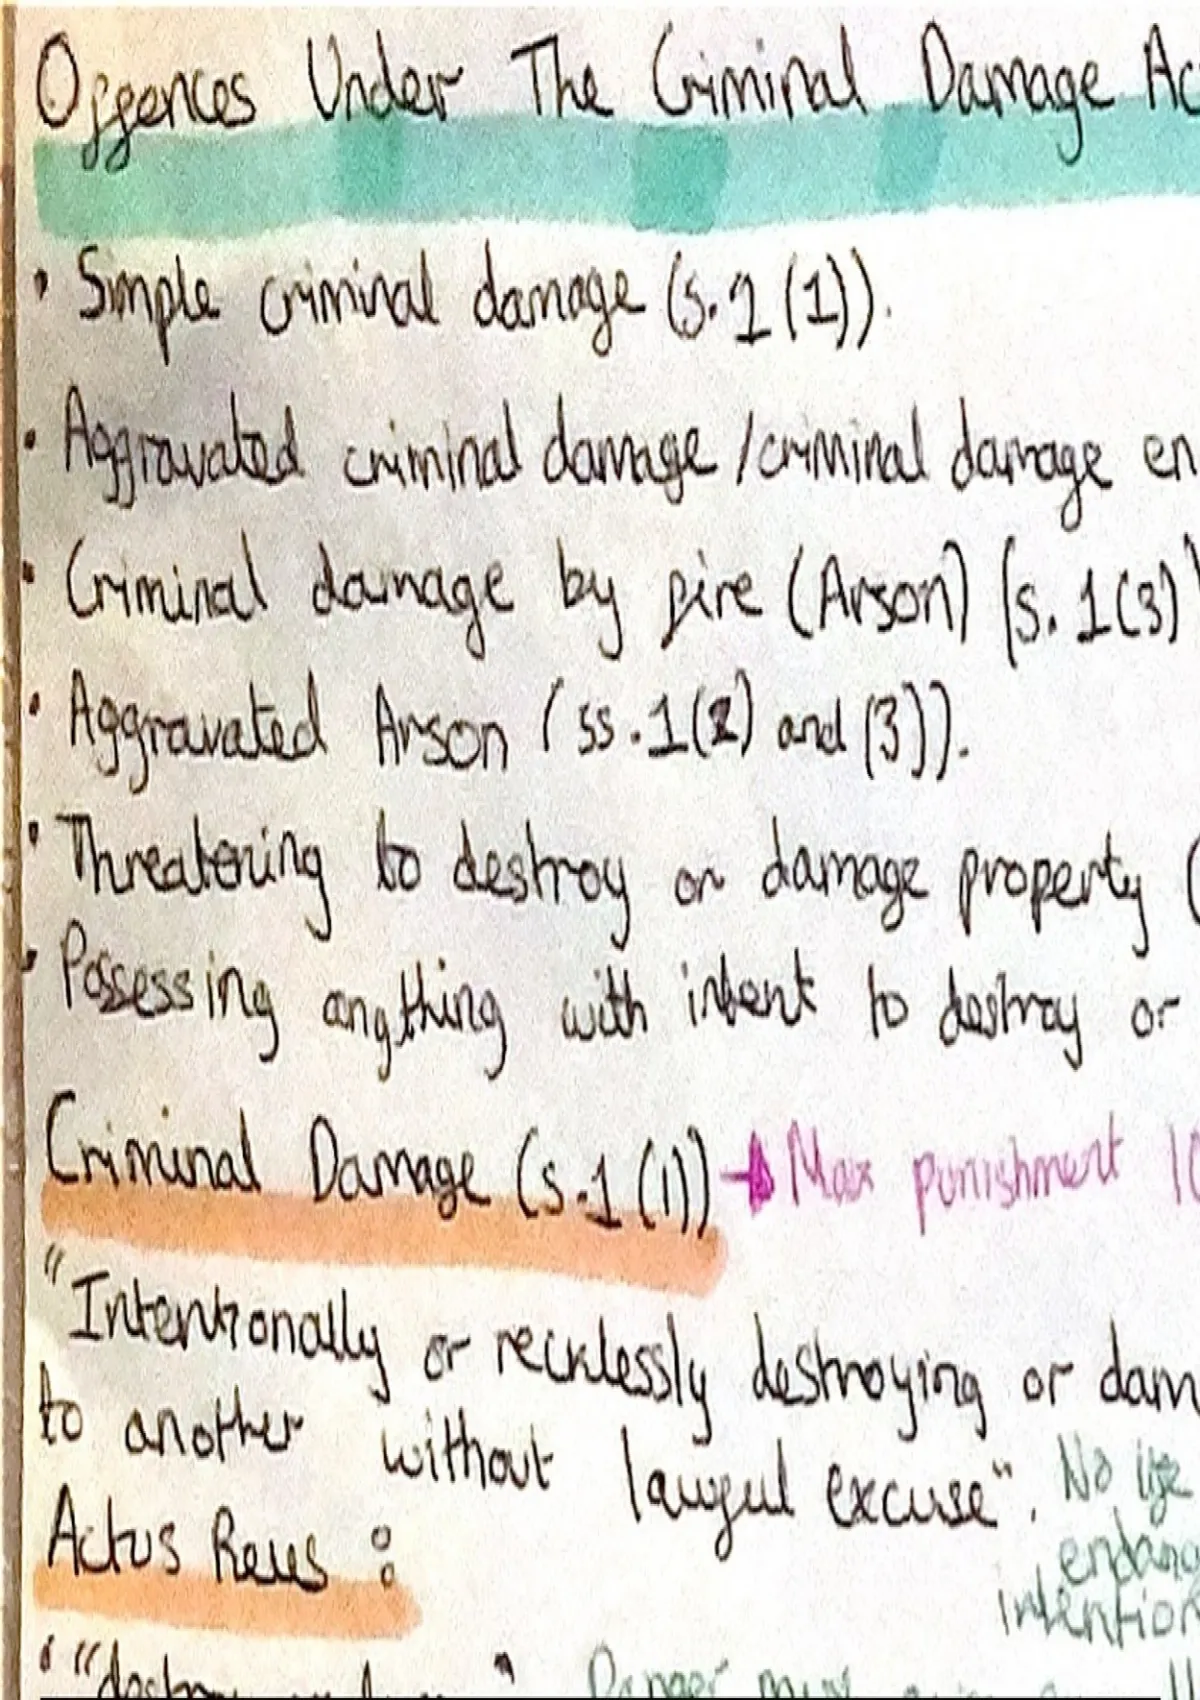 Offences Under The Criminal Damage Ac
• Simple criminal damage (s.1 (1)).
• Aggravated criminal damage / criminal damage en
• Criminal damage by fire (Arson) (s. 1(3)
• Aggravated Arson (ss.1(2) and (3)).
• Threatening to destroy or damage property (
• Possessing anything with intent to destroy or
Criminal Damage (s.1 (1)) → Max punishment 10
"Intentionally or recklessly destroying or dam
to another without lawful excuse". No life
Actus Reus : endang
intention
• "destroy Danger must